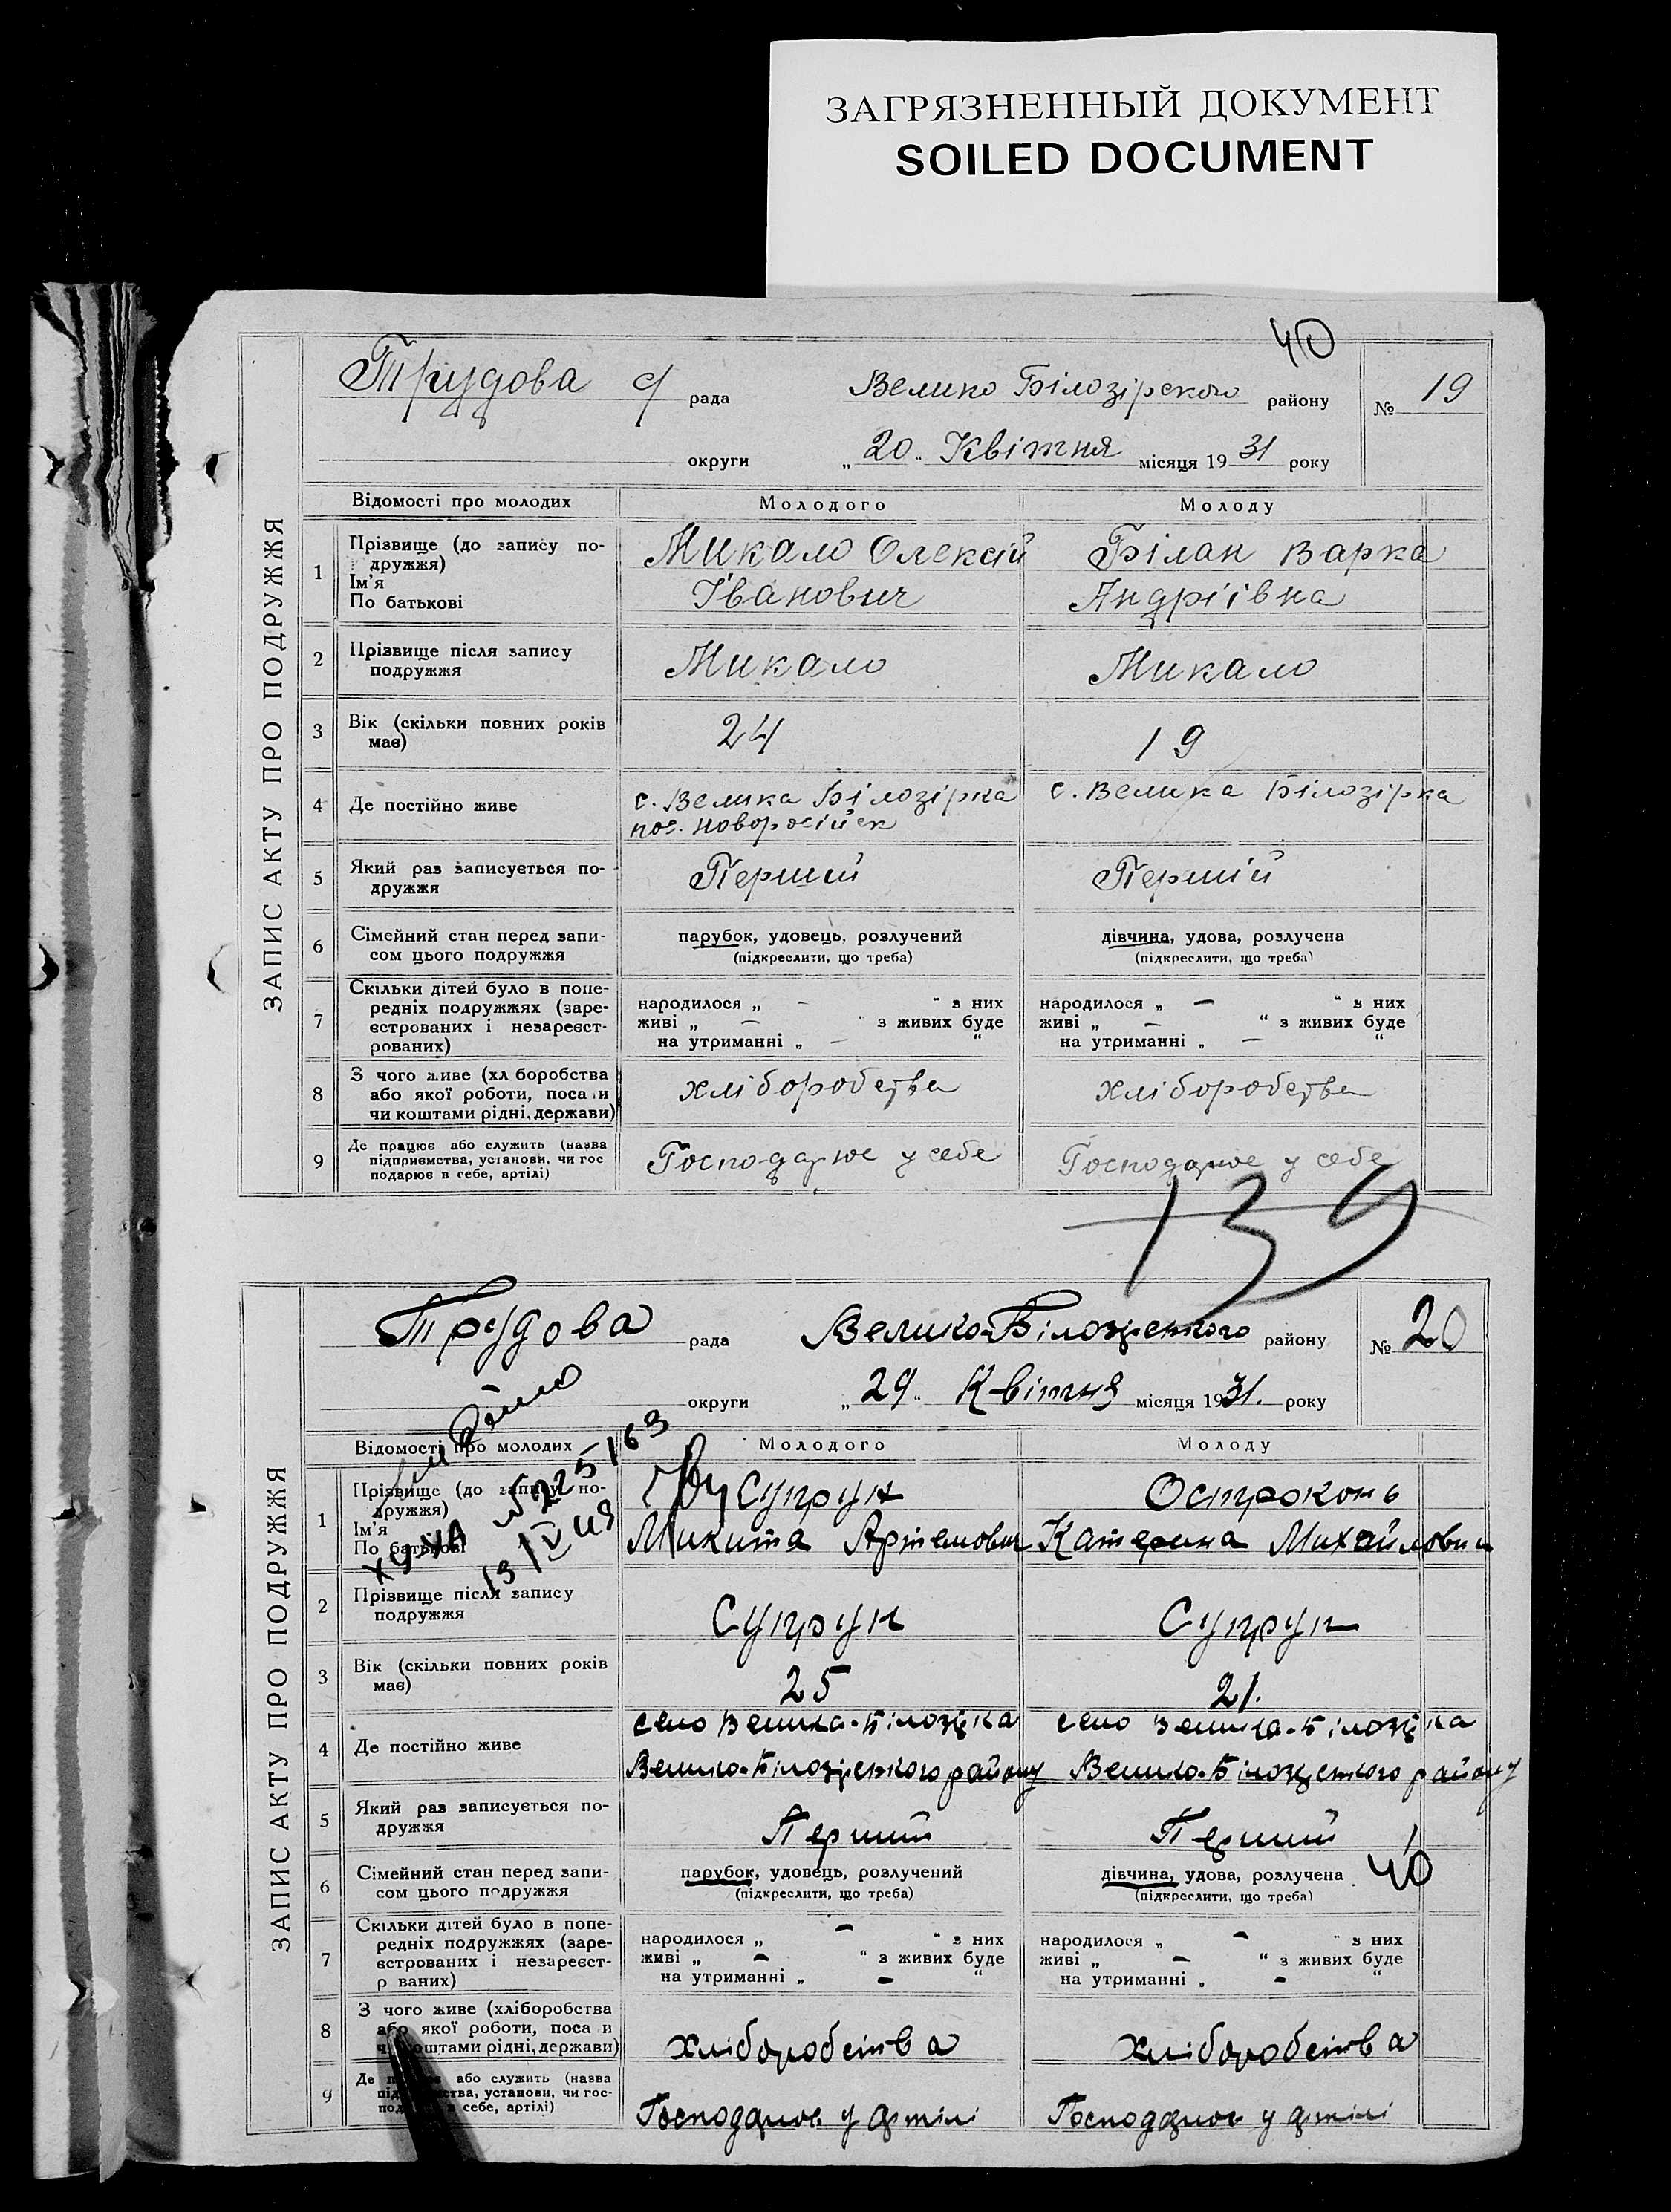 ЗАГРЯЗНЕННЫЙ ДОКУМЕНТ
SOILED DOCUMENT
40
Трудова с/ рада Велико Білозірского району № 19
округи „ 20 " Квітня місяця 1931 року
ЗАПИС АКТУ ПРО ПОДРУЖЖЯ
Відомості про молодих Молодого Молоду
1 Прізвище (до запису по- Микало Олексій Білан Варка
дружжя)
Ім'я Іванович Андріївна
По батькові
2 Прізвище після запису Микало Микало
подружжя
3 Вік (скільки повних років 24 19
має)
4 Де постійно живе с. Велика Білозірка с. Велика Білозірка
пос. Новоросійск
5 Який раз записується по- Перший Перший
дружжя
6 Сімейний стан перед запи- парубок, удовець, розлучений дівчина, удова, розлучена
сом цього подружжя (підкреслити, що треба) (підкреслити, що треба)
7 Скільки дітей було в попе-
редніх подружжях (заре- народилося „ - " з них народилося „ — " з них
єстрованих і незареєст- живі „ — " з живих буде живі „ — " з живих буде
рованих) на утриманні „ — " на утриманні „ — "
8 З чого живе (хл боробства хліборобства хліборобства
або якої роботи, поса и
чи коштами рідні, держави)
9 Де працює або служить (назва Господарює у себе Господарює у себе
підприємства, установи, чи гос
подарює в себе, артілі)
139
Трудова рада Велико-Білозірського району № 20
округи „ 29 " Квітня місяця 1931. року
ЗАПИС АКТУ ПРО ПОДРУЖЖЯ
Відомості про молодих Молодого Молоду
1 Прізвище (до запису по- Супрун Остроконь
дружжя)
Ім'я Микита Артемович Катерина Михайловна
По батькові
ХУ УА № 225163
13/IV 49
2 Прізвище після запису Супрун Супрун
подружжя
3 Вік (скільки повних років 25 21.
має)
4 Де постійно живе село Велика-Білозірка село Велика-Білозірка
Велико-Білозірського району Велико-Білозірського району
5 Який раз записується по- Перший Перший
дружжя
6 Сімейний стан перед запи- парубок, удовець, розлучений дівчина, удова, розлучена 40
сом цього подружжя (підкреслити, що треба) (підкреслити, що треба)
7 Скільки дітей було в попе-
редніх подружжях (заре- народилося „ - " з них народилося „ - " з них
єстрованих і незареєст- живі „ - " з живих буде живі „ - " з живих буде
р ваних) на утриманні „ - " на утриманні „ - "
8 З чого живе (хліборобства хліборобства хліборобства
або якої роботи, поса и
коштами рідні, держави)
9 Де або служить (назва Господарює у артілі Господарює у артілі
установи, чи гос-
себе, артілі)